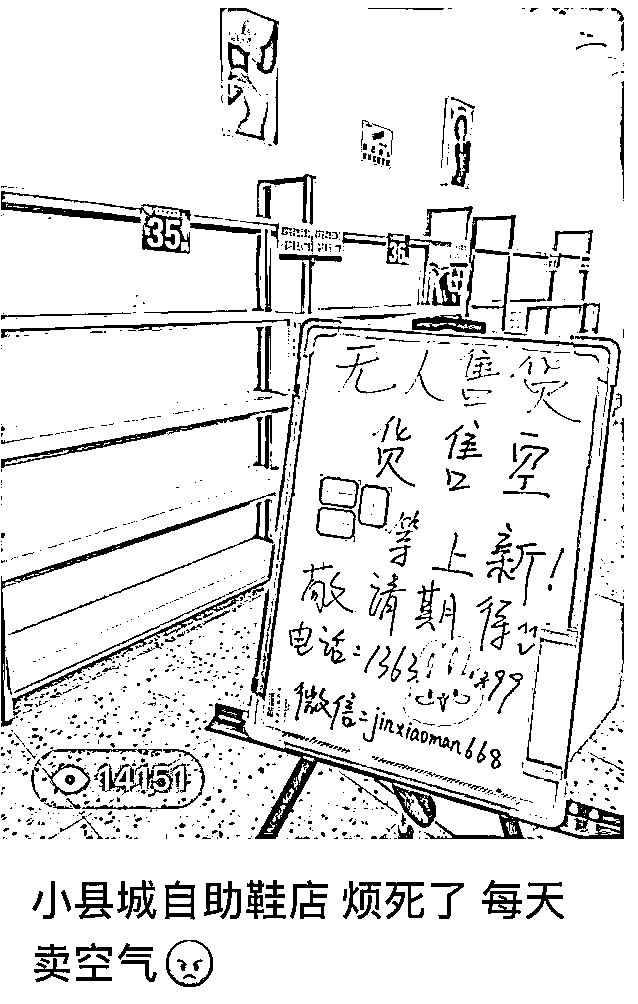 35
36
无人售货
货售空
等上新！
敬请期待
电话：1363
99
微信：jinxiaoman668
14151
小县城自助鞋店 烦死了 每天
卖空气😠